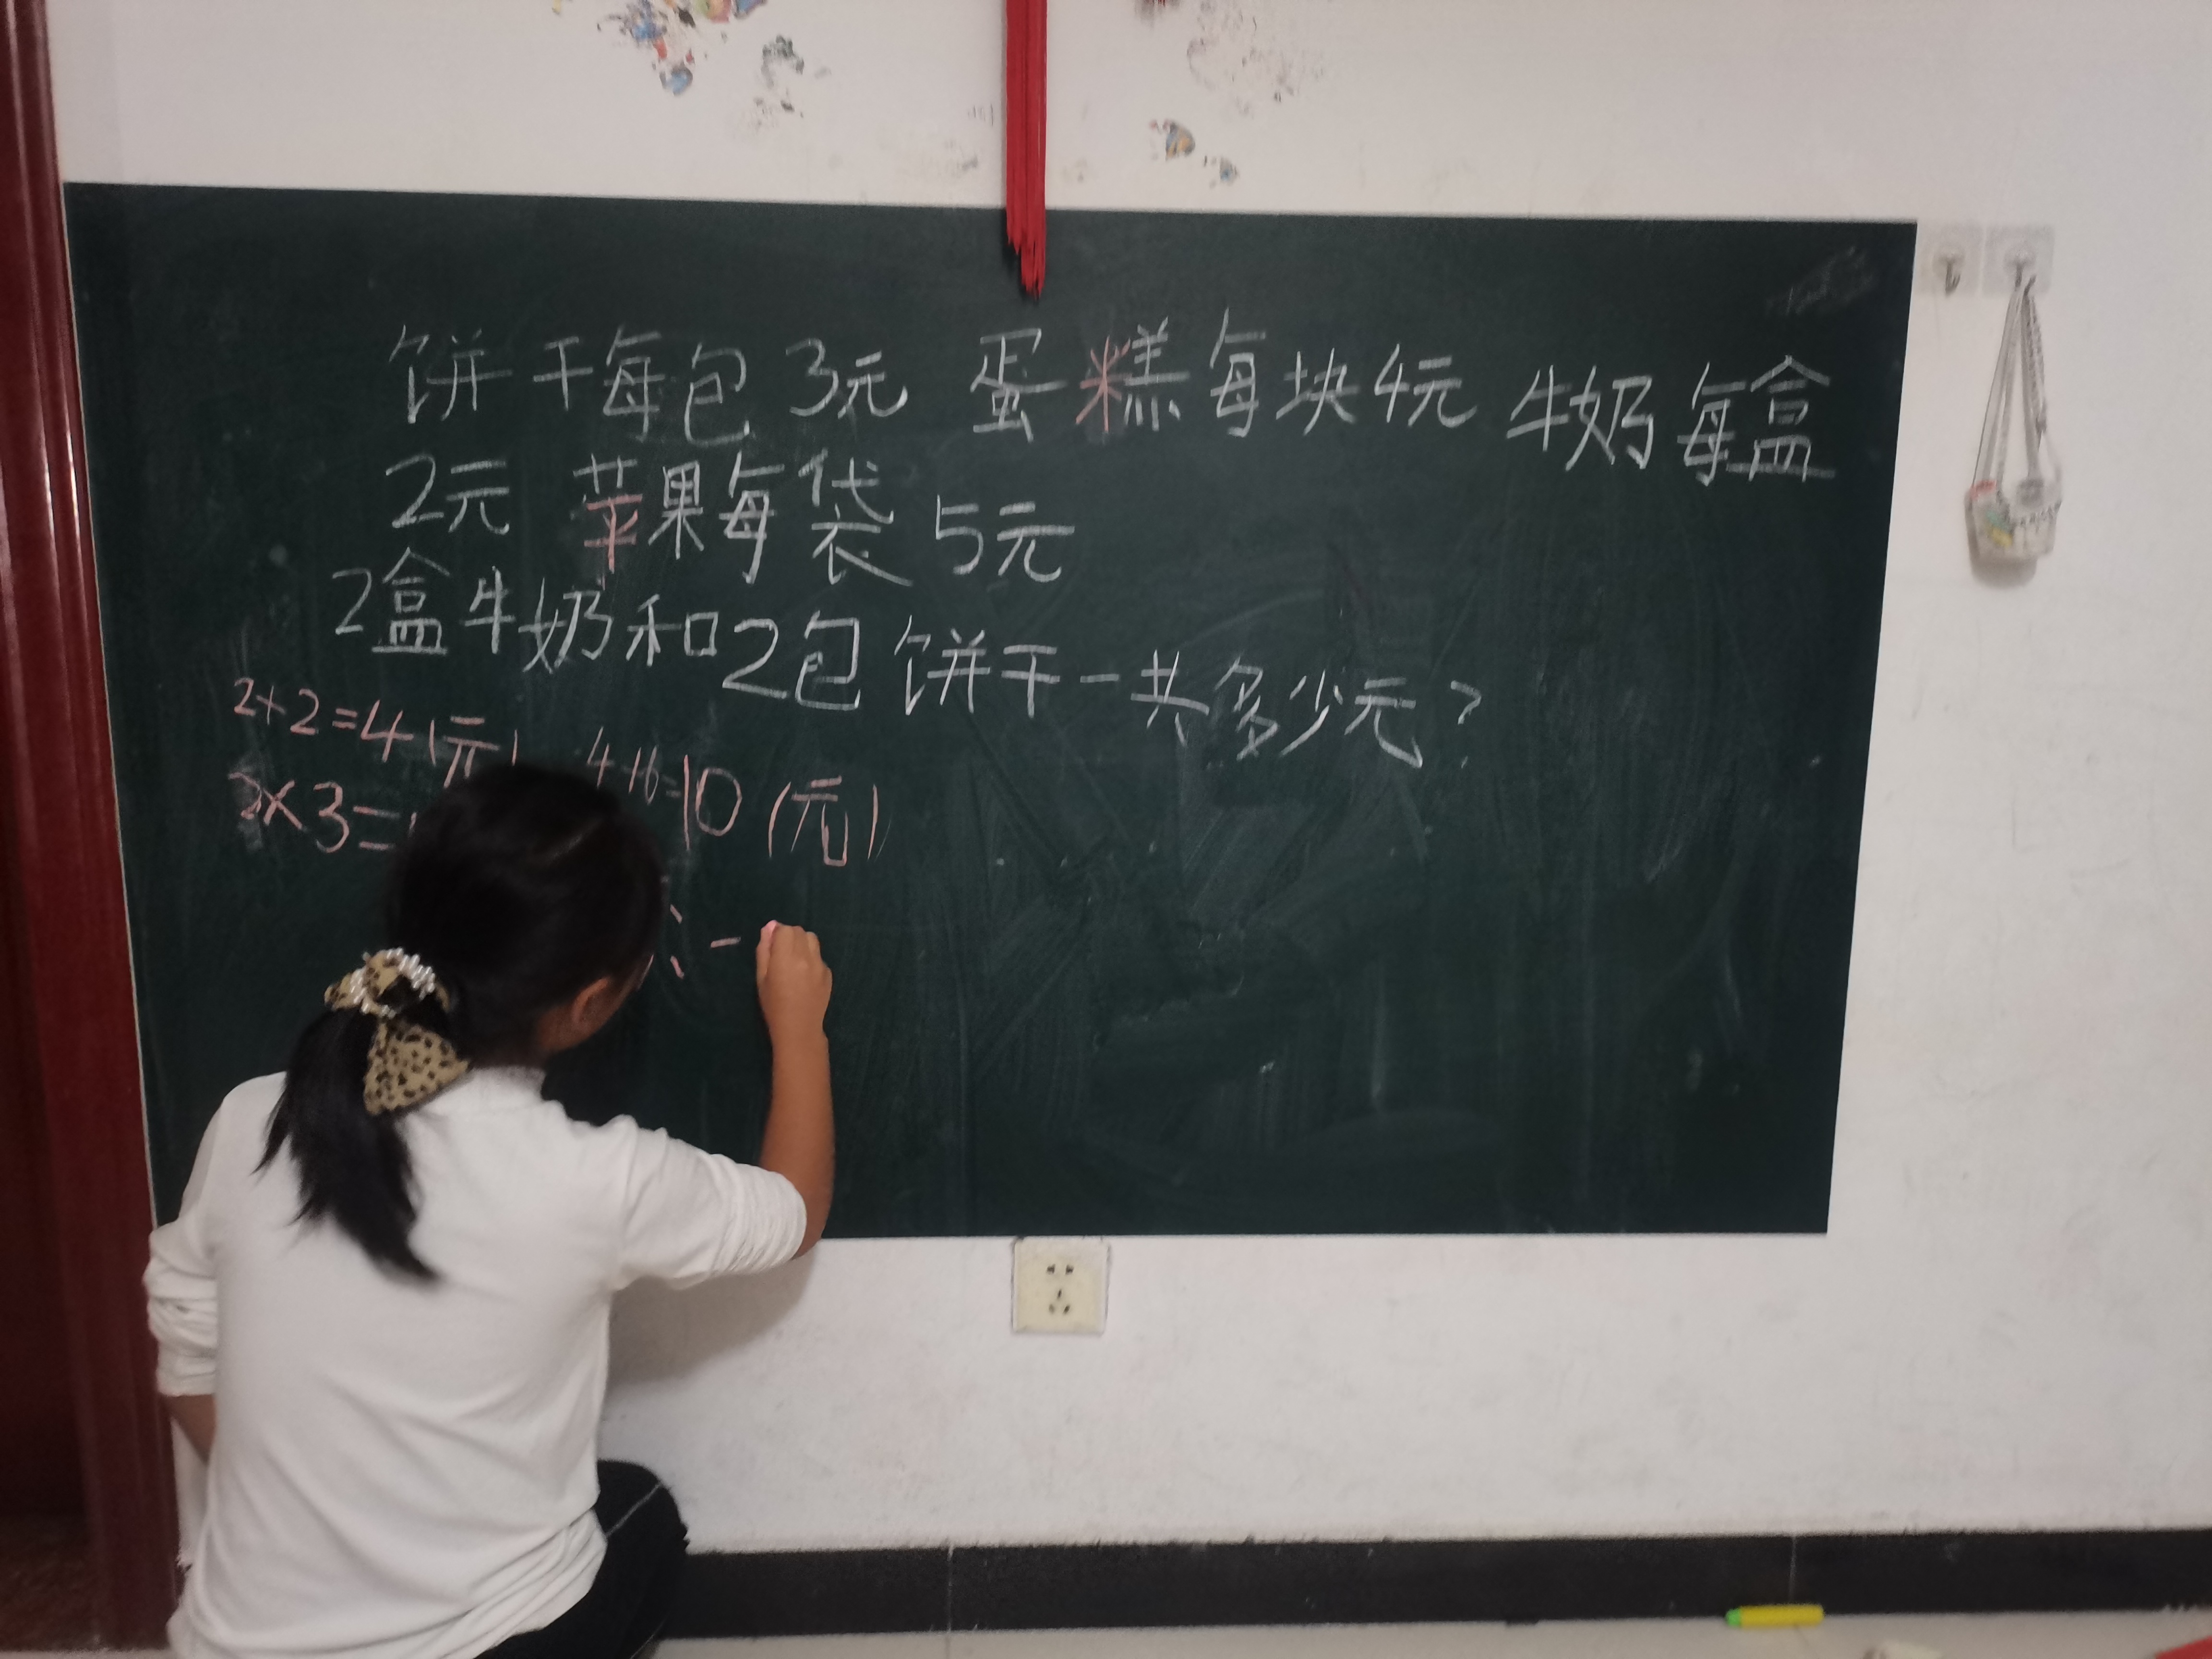 饼干每包3元 蛋糕每块4元 牛奶每盒
2元 苹果每袋5元
2盒牛奶和2包饼干一共多少元?
2+2=4(元) 4+6=10(元)
2×3=